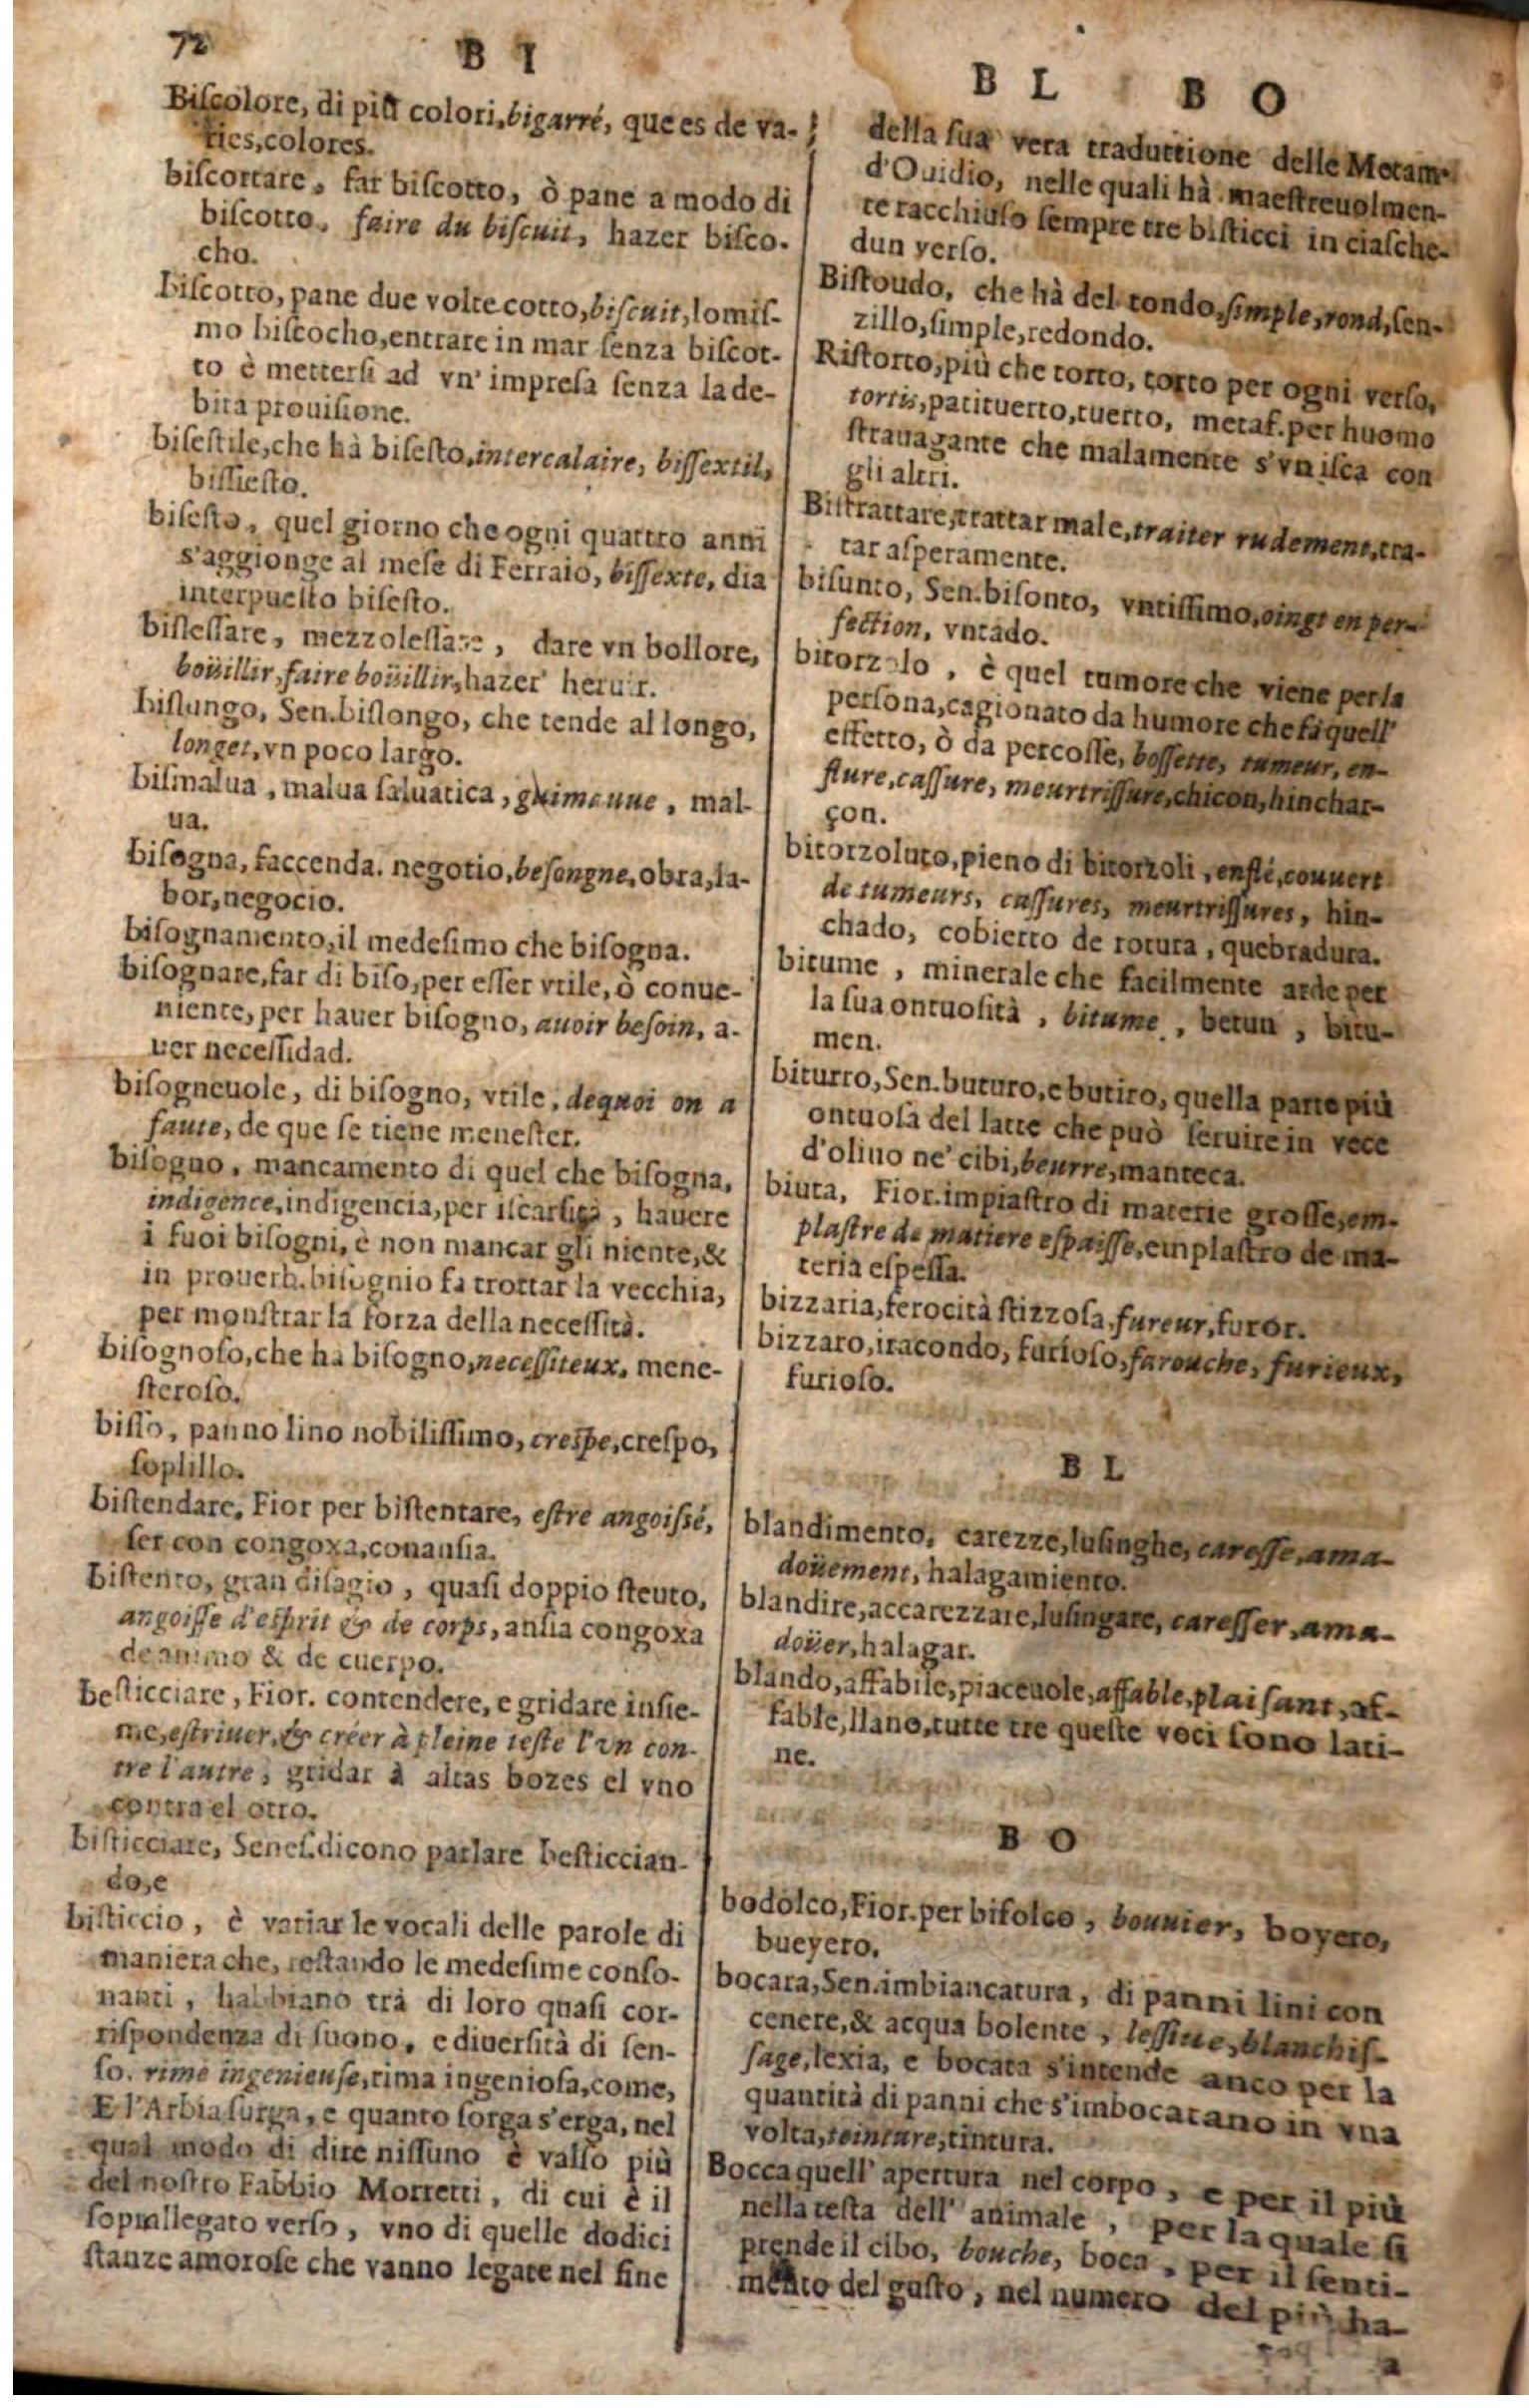 72
B I
Biſcolore, di più colori, bigarré, que es de va-
ries, colores.
biſcottare, far biſcotto, ò pane a modo di
biſcotto, faire du biſcuit, hazer biſco-
cho.
Biſcotto, pane due volte cotto, biſcuit, lo miſ-
mo biſcocho, entrare in mar ſenza biſcot-
to è metterſi ad vn' impreſa ſenza la de-
bita prouiſione.
biſeſtile, che hà biſeſto, intercalaire, biſſextil,
biſſieſto.
biſeſto, quel giorno che ogni quattro anni
s'aggionge al meſe di Ferraio, biſſexte, dia
interpueſto biſeſto.
biſleſſare, mezzoleſſare, dare vn bollore,
boüillir, faire boüillir, hazer heruir.
biſlungo, Sen. biſlongo, che tende al longo,
longet, vn poco largo.
biſmalua, malua ſaluatica, guimauue, mal-
ua.
biſogna, faccenda. negotio, beſongne, obra, la-
bor, negocio.
biſognamento, il medeſimo che biſogna.
biſognare, far di biſo, per eſſer vtile, ò conue-
niente, per hauer biſogno, auoir beſoin, a-
uer neceſſidad.
biſogneuole, di biſogno, vtile, dequoi on a
faute, de que ſe tiene meneſter.
biſogno, mancamento di quel che biſogna,
indigence, indigencia, per iſcarſità, hauere
i ſuoi biſogni, è non mancar gli niente, &
in prouerb. biſognio fa trottar la vecchia,
per monſtrar la forza della neceſſità.
biſognoſo, che ha biſogno, neceſſiteux, mene-
ſteroſo.
biſſo, panno lino nobiliſſimo, creſpe, creſpo,
ſoplillo.
biſtendare, Fior per biſtentare, eſtre angoiſsé,
ſer con congoxa, conanſia.
biſtento, gran diſagio, quaſi doppio ſteuto,
angoiſſe d'eſprit & de corps, anſia congoxa
de animo & de cuerpo.
beſticciare, Fior. contendere, e gridare inſie-
me, eſtriuer, & créer à pleine teſte l'vn con-
tre l'autre, gridar à altas bozes el vno
contra el otro.
biſticciare, Seneſ. dicono parlare beſticcian-
do, e
biſticcio, è variar le vocali delle parole di
maniera che, reſtando le medeſime conſo-
nanti, habbiano trà di loro quaſi cor-
riſpondenza di ſuono, e diuerſità di ſen-
ſo. rime ingenieuſe, rima ingenioſa, come,
E l'Arbia ſurga, e quanto ſorga s'erga, nel
qual modo di dire niſſuno è valſo più
del noſtro Fabbio Morretti, di cui è il
ſoprallegato verſo, vno di quelle dodici
ſtanze amoroſe che vanno legate nel fine
B L B O
della ſua vera traduttione delle Metam.
d'Ouidio, nelle quali hà maeſtreuolmen-
te racchiuſo ſempre tre biſticci in ciaſche-
dun verſo.
Biſtoudo, che hà del tondo, ſimple, rond, ſen-
zillo, ſimple, redondo.
Riſtorto, più che torto, torto per ogni verſo,
tortis, patituerto, tuerto, metaf. per huomo
ſtrauagante che malamente s'vniſca con
gli altri.
Biſtrattare, trattar male, traiter rudement, tra-
tar aſperamente.
biſunto, Sen. biſonto, vntiſſimo, oingt en per-
fection, vntado.
bitorzolo, è quel tumore che viene per la
perſona, cagionato da humore che fà quell'
effetto, ò da percoſſe, boſſette, tumeur, en-
flure, caſſure, meurtriſſure, chicon, hinchar-
çon.
bitorzoluto, pieno di bitorzoli, enflé, couuert
de tumeurs, caſſures, meurtriſſures, hin-
chado, cobierto de rotura, quebradura.
bitume, minerale che facilmente arde per
la ſua ontuoſità, bitume, betun, bitu-
men.
biturro, Sen. buturo, e butiro, quella parte più
ontuoſa del latte che può ſeruire in vece
d'oliuo ne' cibi, beurre, manteca.
biuta, Fior. impiaſtro di materie groſſe, em-
plaſtre de matiere eſpaiſſe, emplaſtro de ma-
teria eſpeſſa.
bizzaria, ferocità ſtizzoſa, fureur, furor.
bizzaro, iracondo, furioſo, farouche, furieux,
furioſo.
B L
blandimento, carezze, luſinghe, careſſe, ama-
doüement, halagamiento.
blandire, accarezzare, luſingare, careſſer, ama-
doüer, halagar.
blando, affabile, piaceuole, affable, plaiſant, af-
fable, llano, tutte tre queſte voci ſono lati-
ne.
B O
bodolco, Fior. per bifolco, bouuier, boyero,
bueyero.
bocata, Sen. imbiancatura, di panni lini con
cenere, & acqua bolente, leſſiue, blanchiſ-
ſage, lexia, e bocata s'intende anco per la
quantità di panni che s'imbocatano in vna
volta, teinture, tintura.
Bocca quell' apertura nel corpo, e per il più
nella teſta dell' animale, per la quale ſi
prende il cibo, bouche, boca, per il ſenti-
mento del guſto, nel numero del più ha-
a